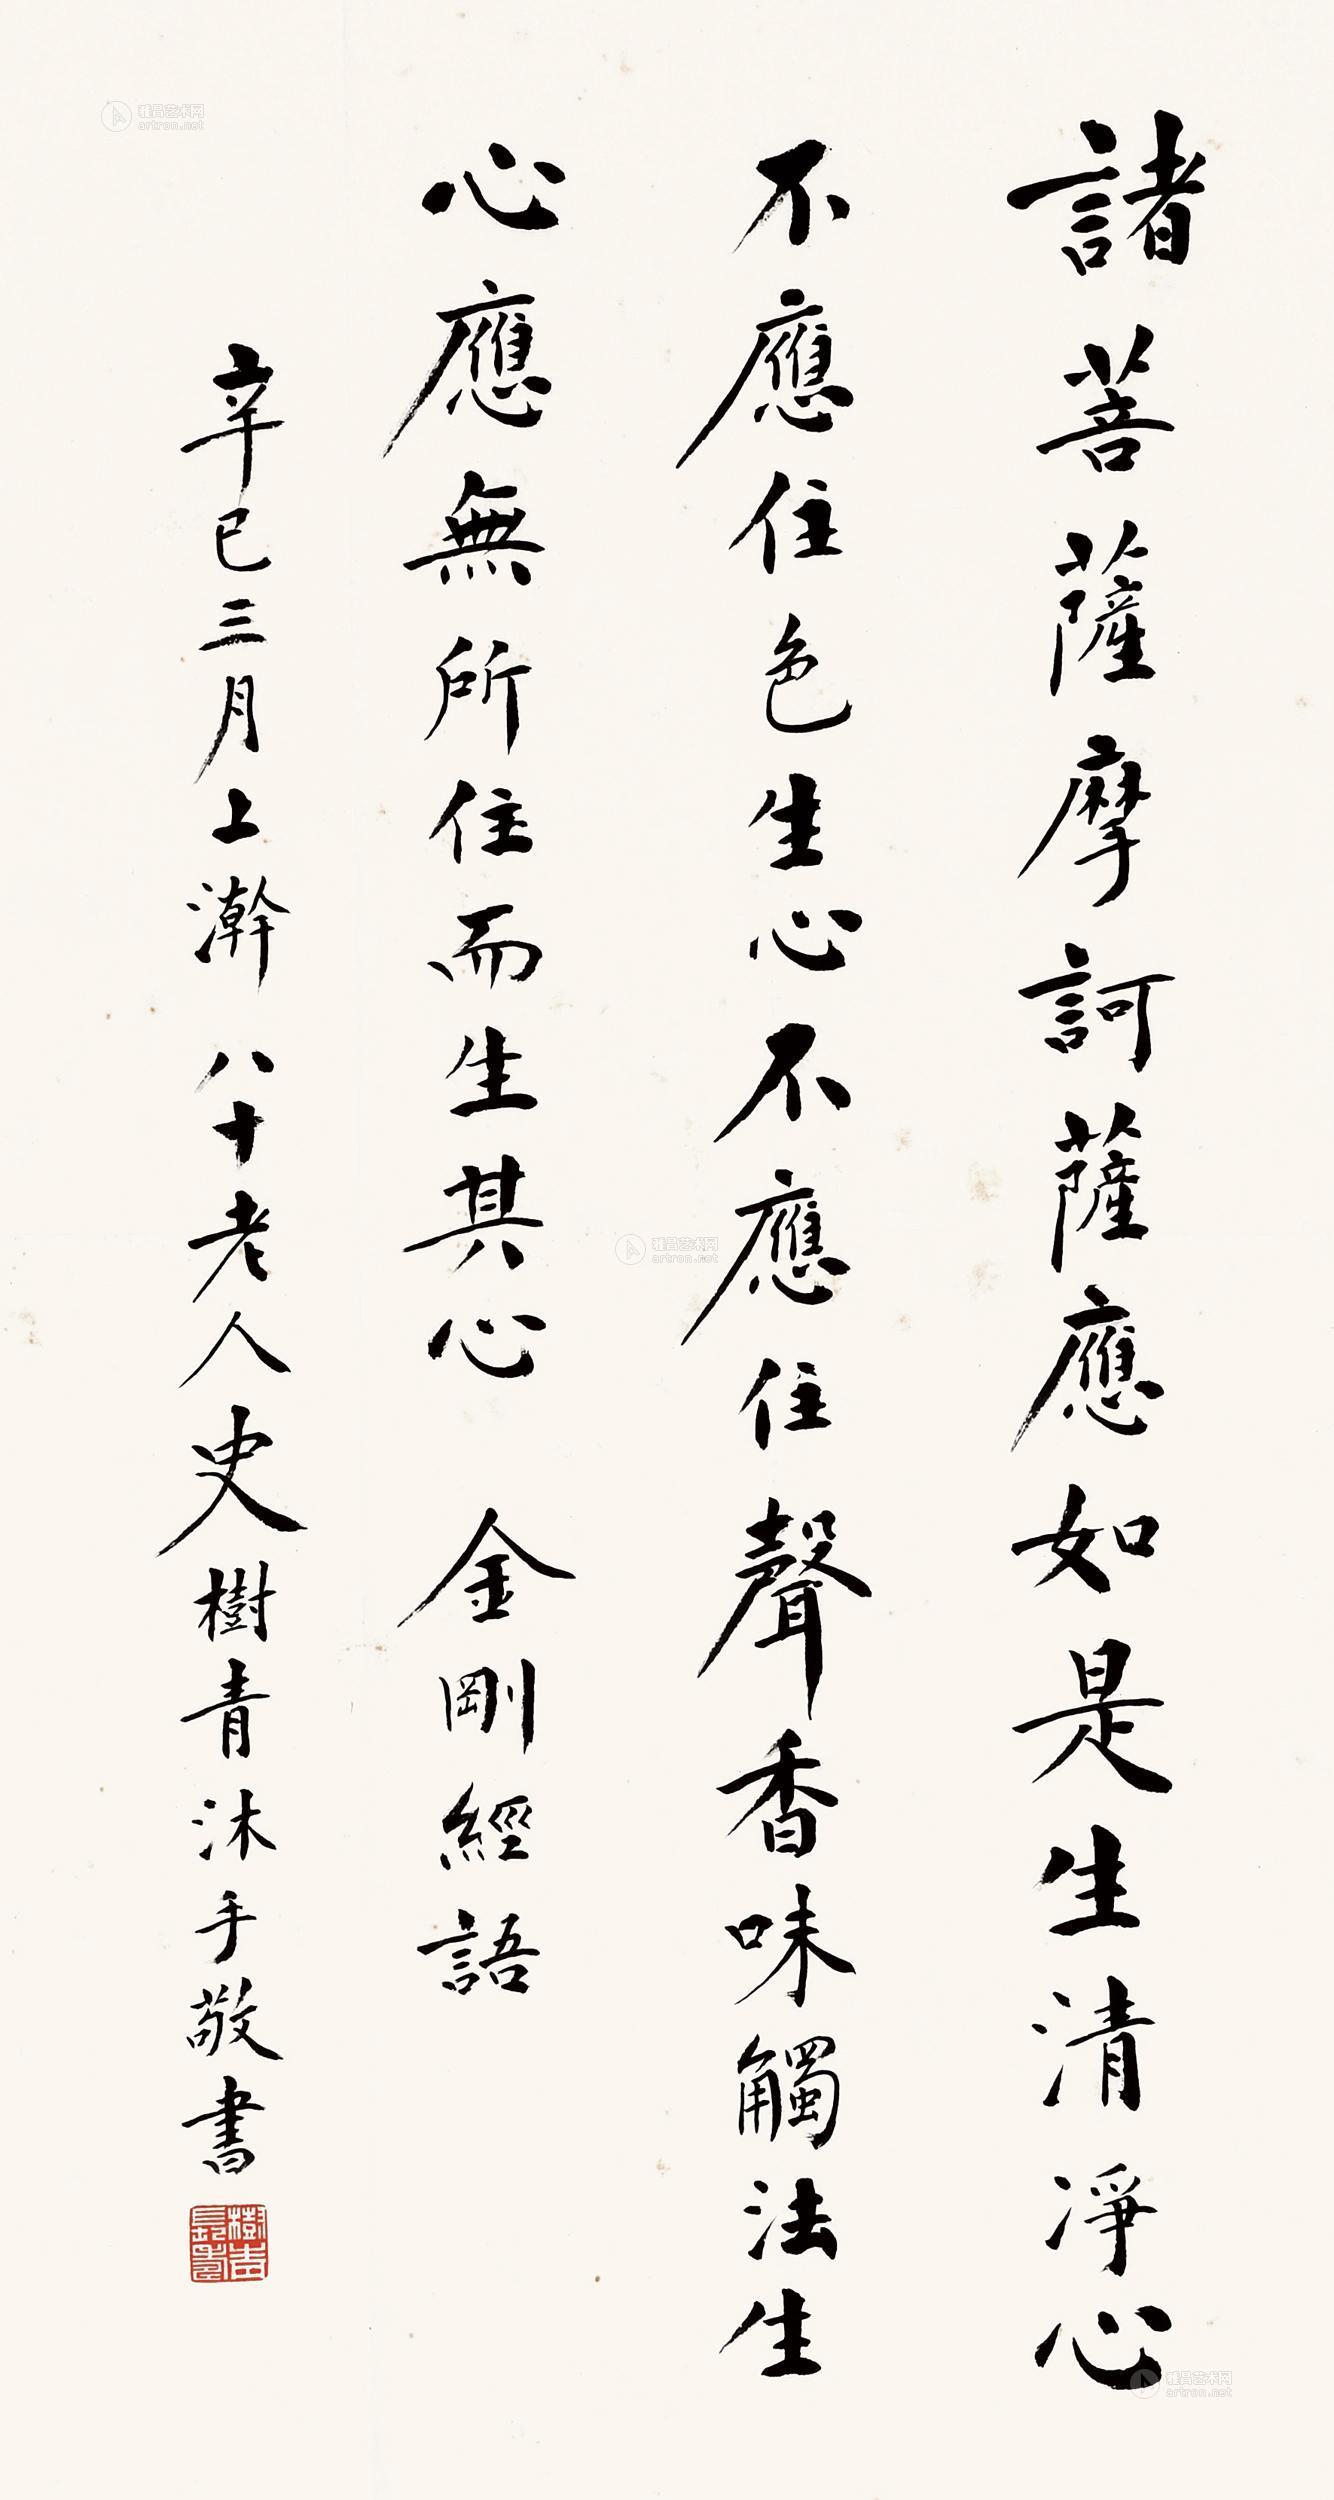 諸菩薩摩訶薩應如是生清淨心
不應住色生心不應住聲香味觸法生
心應無所住而生其心 金剛經語
辛巳三月上澣 八十老人史樹青沐手敬書
雅昌艺术网
artron.net
雅昌艺术网
artron.net
雅昌艺术网
artron.net